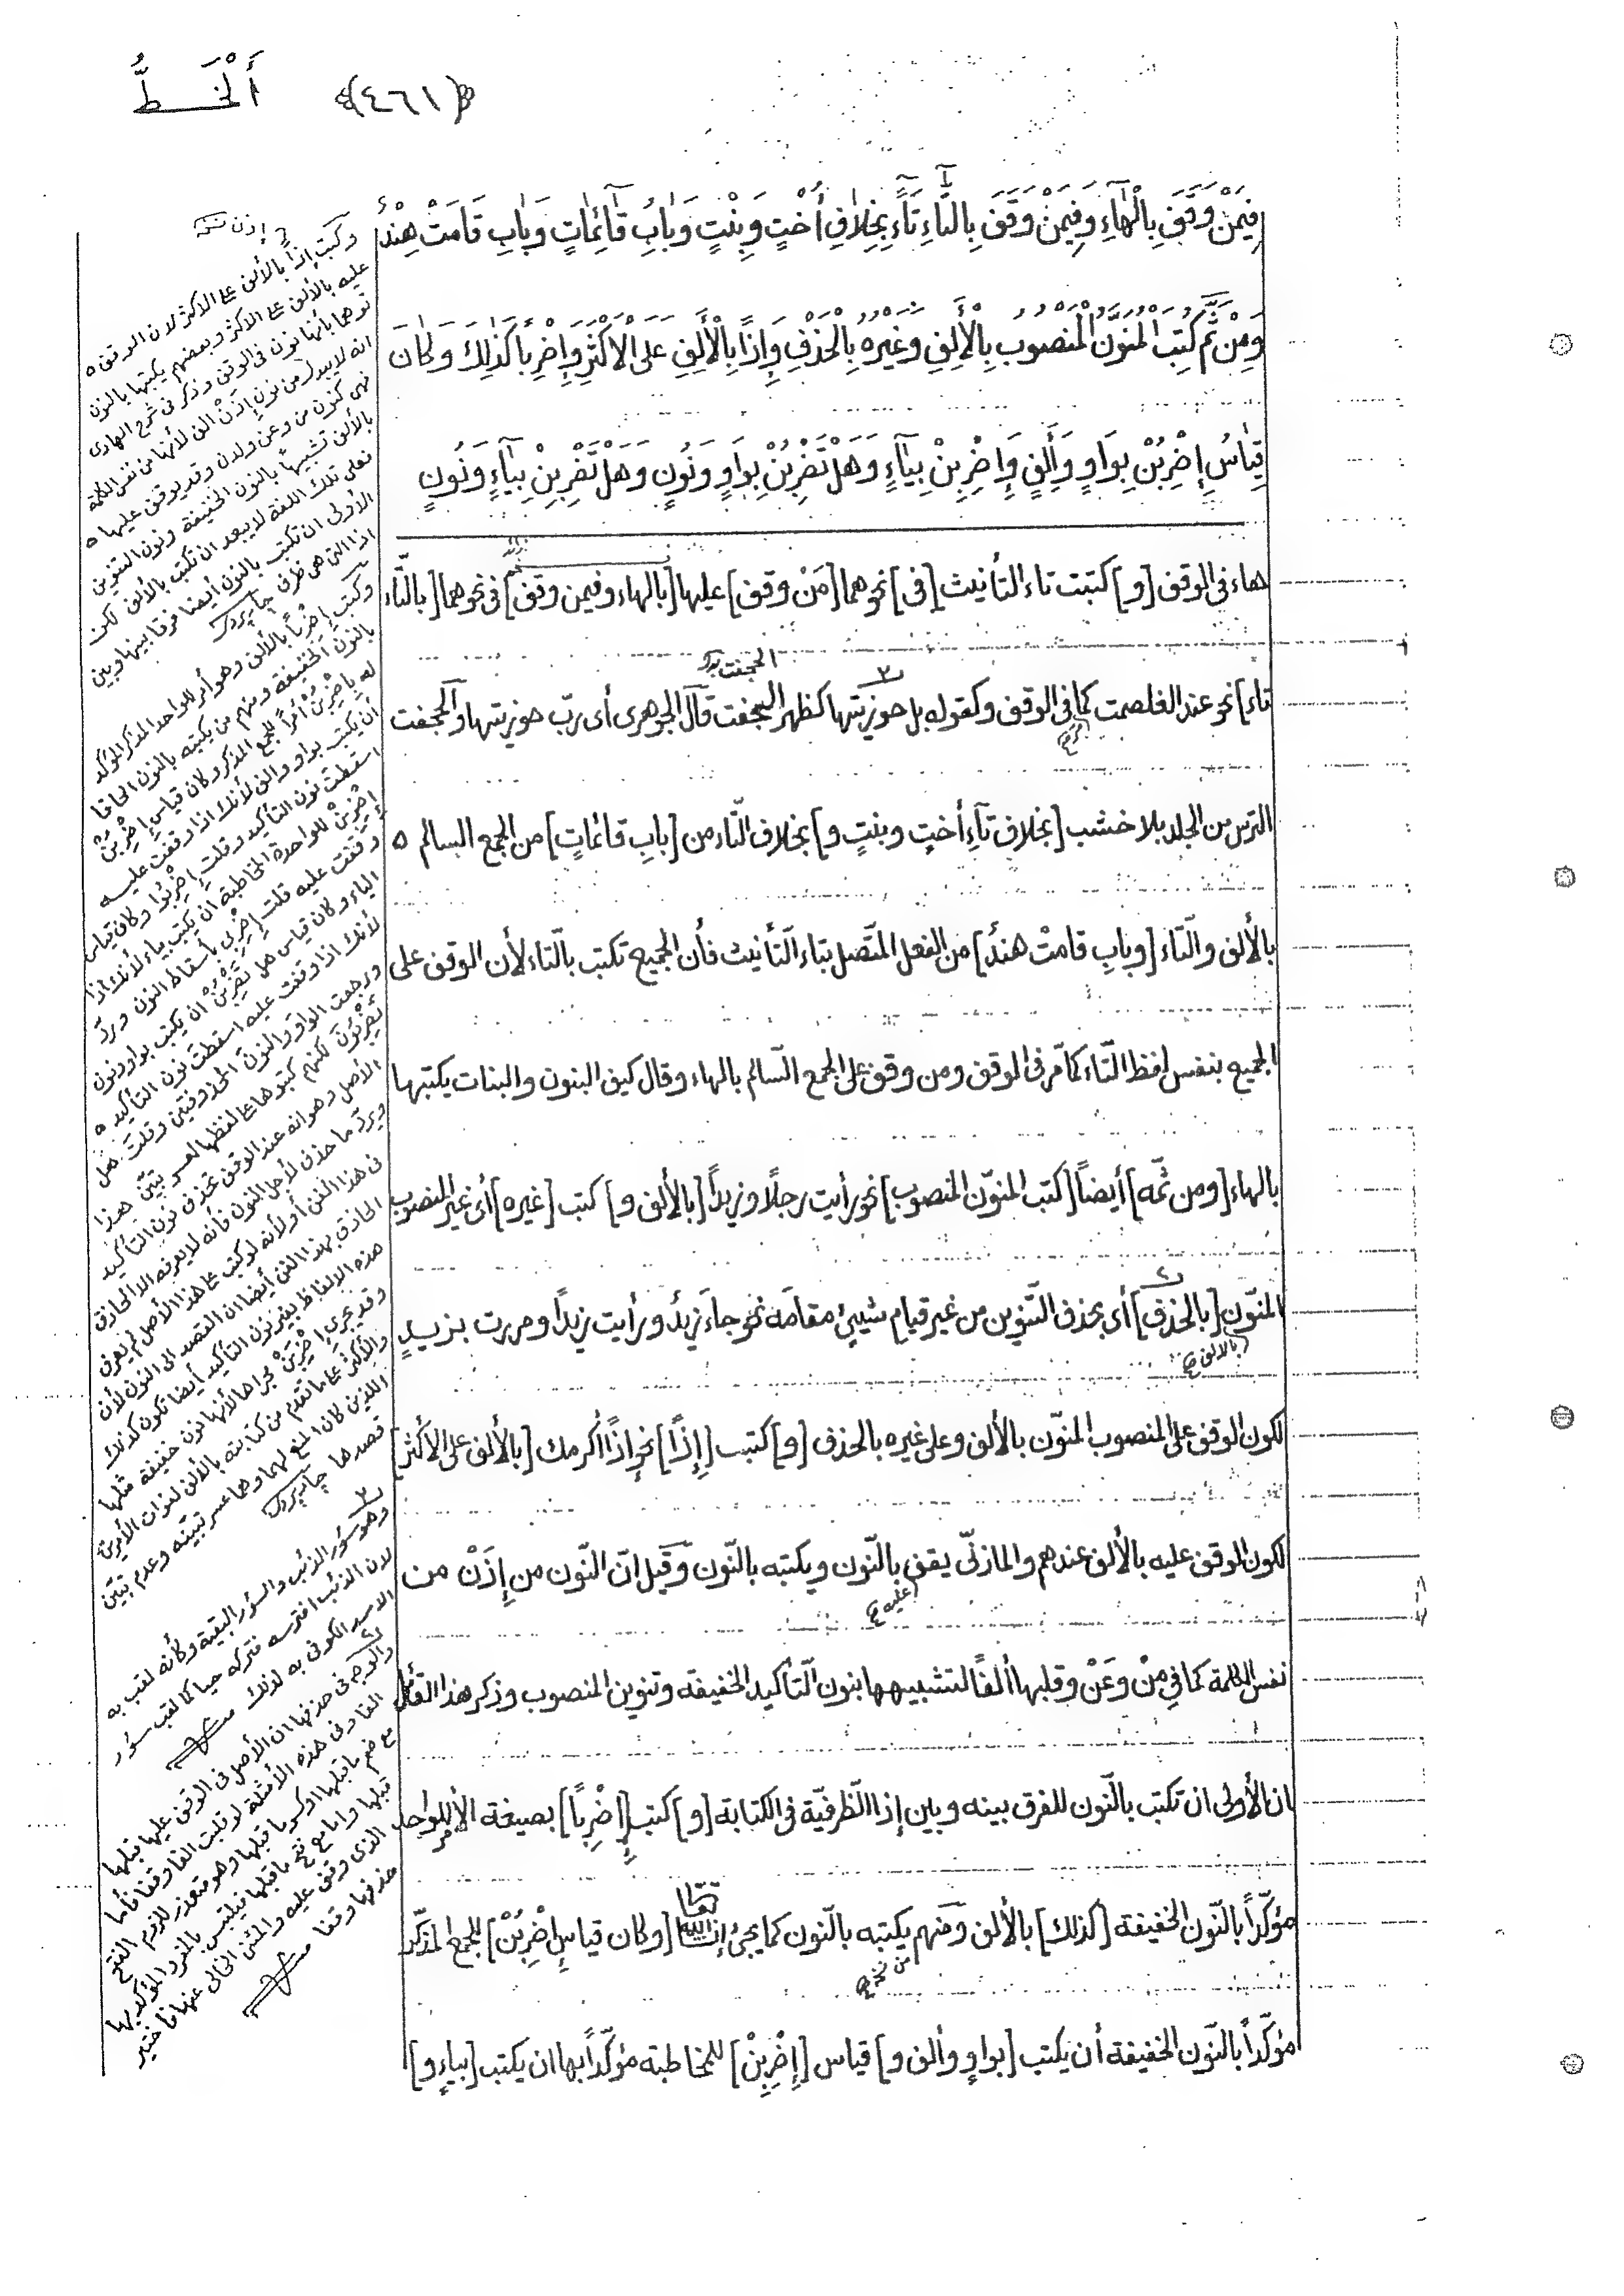 اَلْخَـطُّ
﴿٤٦١﴾
فِيمَنْ وَقَفَ بِالْهَاءِ وَفِيمَنْ وَقَفَ بِالتَّاءِ تَاءً بِخِلَافِ أُخْتٍ وَبِنْتٍ وَبَابِ قَائِمَاتٍ وَبَابِ قَامَتْ هِنْدٌ
وَمِنْ ثَمَّ كُتِبَ الْمُنَوَّنُ الْمَنْصُوبُ بِالْأَلِفِ وَغَيْرُهُ بِالْحَذْفِ وَإِذًا بِالْأَلِفِ عَلَى الْأَكْثَرِ وَإِضْرِبًا كَذَلِكَ وَكَانَ
قِيَاسُ إِضْرِبُنْ بِوَاوٍ وَأَلِفٍ وَإِضْرِبِنْ بِيَاءٍ وَهَلْ تَضْرِبُنْ بِوَاوٍ وَنُونٍ وَهَلْ تَضْرِبِنْ بِيَاءٍ وَنُونٍ
هاء فى الوقف [و] كتبت تاء التأنيث [فى] نحوهما [مَنْ وقف] عليها [بالهاء وفيمن وقف] فى نحوهما [بالتّاء
تاء] نحو عند الغلصمت كما فى الوقف وكقوله بل جوز تيها كظهر الحجفت قال الجوهرى أى ربّ جوز تيها والحجفت
الترس من الجلد بلا خشب [بخلاف تآءِ أختٍ وبنتٍ و] بخلاف التّاء من [بابِ قائماتٍ] من الجمع السالم
بالألف والتّاء [وبابِ قامتْ هندٌ] من الفعل المتّصل بتاء التأنيث فأن الجميع تكتب بالتّاء لأن الوقف على
الجميع بنفس لفظ التّاء كما مّر فى الوقف ومن وقف على الجمع السّالم بالهاء وقال كيف البنون والبنات يكتبها
بالهاء [ومن ثمّه] أيضاً [كتب المنوّن المنصوب] نحو رأيت رجلًا وزيداً [بالألف و] كتب [غيره] أى غير المنصوب
المنوّن [بالحذف] أى بحذف التّنوين من غير قيام شيىءٍ مقامَه نحو جاءَ زيدٌ ورأيت زيداً ومررت بزيـدٍ
لكون الوقف على المنصوب المنّون بالألف وعلى غيره بالحذف [و] كتب [إِذًا] نحو إِذًا أكرمك [بالألف على الأكثر]
لكون الوقف عليه بالألف عندهم والمازنّى يقف بالنّون ويكتبه بالنّون وقيل انّ النّون من إِذَنْ من
نفس الكلمة كما فِي مِنْ وعَنْ وقلبها ألفاً لتشبيهها بنون التّأكيد الخفيفة وتنوين المنصوب وذكر هذا القائل
ان الأولى ان تكتب بالنّون للفرق بينه وبين إذا الظّرفيّة فى الكتابة [و] كتب [إِضْرِبًا] بصيغة الأمر للواحد
مؤكّداً بالنّون الخفيفة [كذلك] بالألف ومنهم يكتبه بالنّون كما يجىُٔ إنشاالله تعالى [وكان قياسِ إِضْرِبُنْ] للجمع المذكّر
مؤكّداً بالنّون الخفيفة أن يكتب [بواوٍ وألف و] قياس [إِضْرِبِنْ] للمخاطبة مؤكّداً بها ان يكتب [بياءٍ و]
وكتب إذاً بالألف على الاكثر لان الوقف
عليه بالألف على الاكثر وبعضهم يكتبها بالنون
توهما بأنها نون فى الوقف وذكر فى شرح الهادى
انه لا يبدل من نون إذن الف لأنها من نفس الكلمة
فهى كنون من وعن ولدن وقد يوقف عليها
بالألف تشبيهاً بالنون الخفيفة ونون التنوين
فعلى تلك اللغة لا يبعد ان تكتب بالألف لكن
الأولى ان تكتب بالنون أيضا فرقا بينها وبين
اذا التى هى ظرف جاربردى
وكتب إضرباً بالألف وهو أمر للواحد المذكر المؤكد
بالنون الخفيفة ومنهم من يكتبه بالنون الحاقا
له بإضربُنْ أمراً للجمع المذكر وكان قياس إضربُنْ
أن يكتب بواو والف لأنك اذا وقفت عليه
اسقطت نون التأكيد وقلت إضربُوا وكان قياس
إضربِنْ للواحدة المخاطبة ان يكتب بياء لأنك اذا
وقفت عليه قلت إضربى بأسقاط النون وردّ
الياء وكان قياس هل تضربُنْ ان يكتب بواو ونون
لأنك اذا وقفت عليه اسقطت نون التأكيد
ورجعت الواو والنون المحذوفتين وقلت هل
تضربُونَ لكنهم كتبوها على لفظها لعسر تبيّن هذا
الأصل وهو انه عند الوقف تحذف نون التأكيد
ويردّ ما حذف لأجل النون فأنه لا يعرفه الا الحاذق
فى هذا الفن أو لأنه لو كتب على هذا الأصل لم يعرف
الحاذق بهذا الفن أيضا ان القصد الى النون لأن
هذه الالفاظ بغير نون التأكيد أيضا تكون كذلك
وقد يجرى إضربَنْ مجراها لأنها نون خفيفة مثلها
والأكثر على ما تقدم من كتابته بالألف لفوات الأمرين
اللذين كان المنع لهما وهما عسر تبيّنه وعدم تبيّن
قصدها جاربردى
وهو سؤر الذئب والسؤر البقية وكأنه لقب به
لان الذئب افترسه فتركه حيا كما لقب سؤر
الاسد الكوفى به لذلك
والوجه فى حذفها ان الأصل فى الوقف عليها قبلها
الفا وفى هذه الأمثلة لو قلبت الفا وقفا فأما
مع ضم ما قبلها او كسر ما قبلها وهو متعذر للزوم الفتح
قبلها واما مع فتح ما قبلها فيلتبس بالمفرد المؤكد بها
الذى وقف عليه والمثنى الخالى عنها فاختير
حذفها وقفا